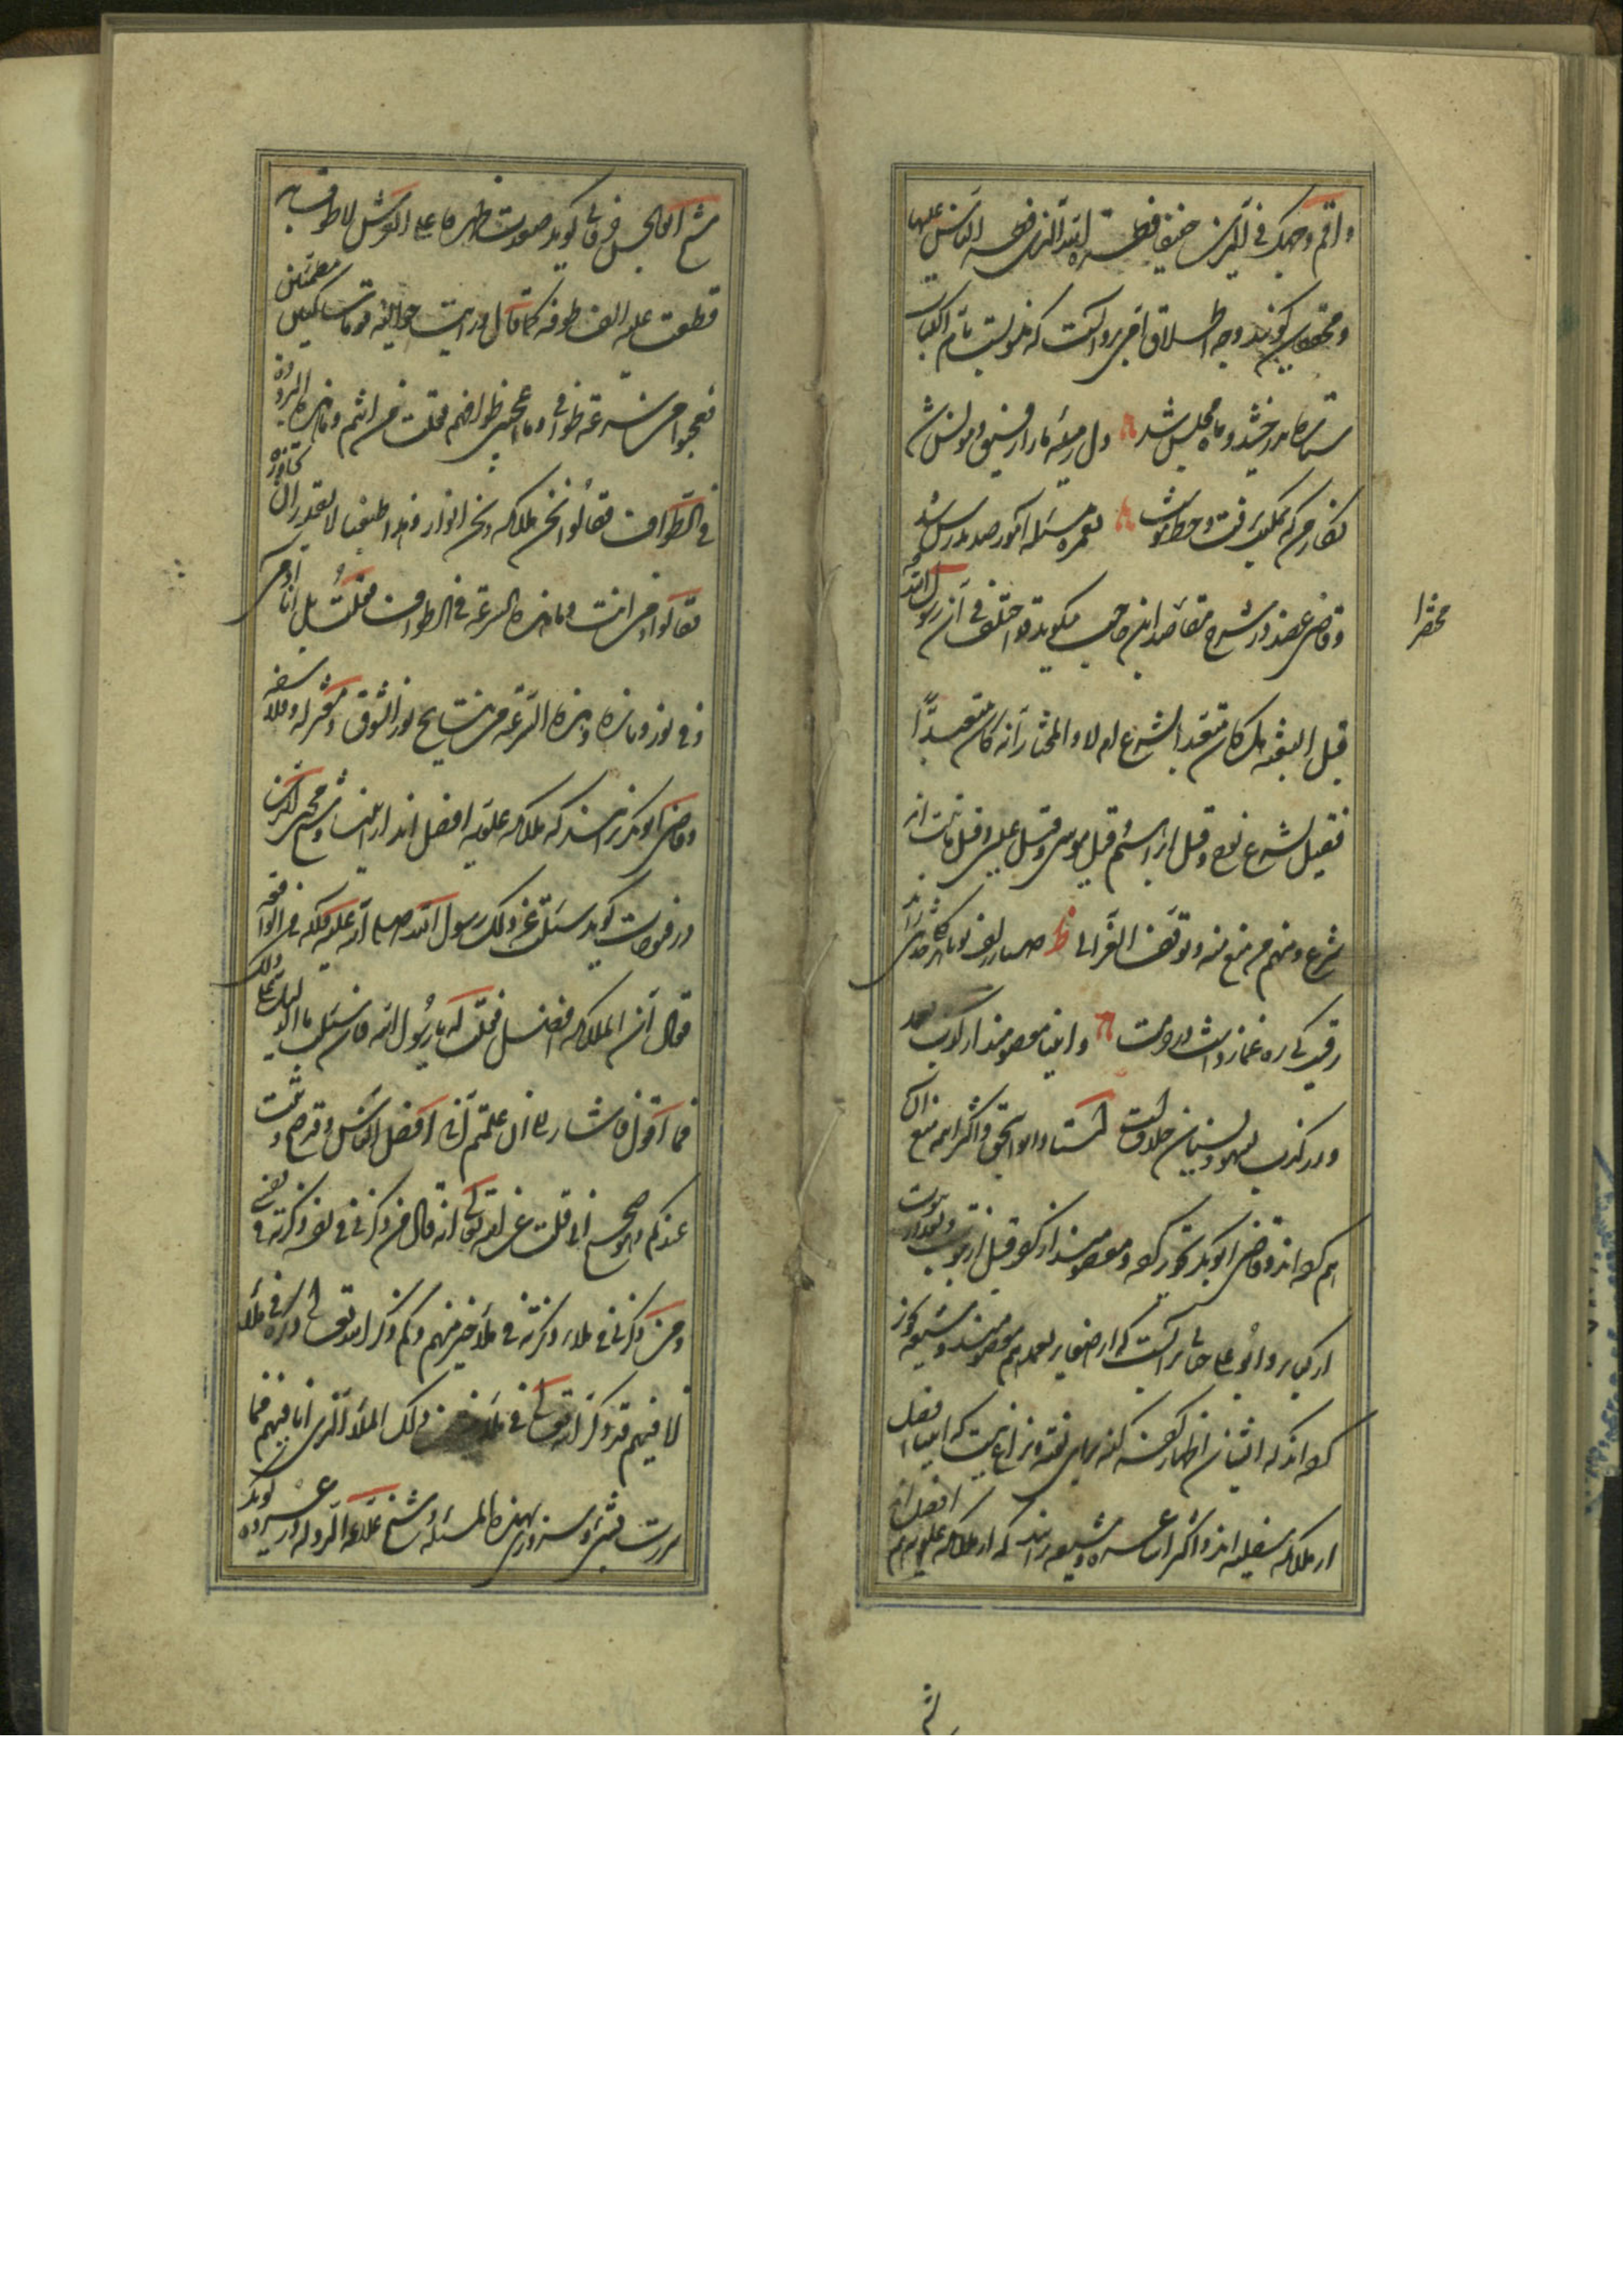 واقم وجهک فی الدین حنیفا فطرة الله الذی فطر الناس علیها
و محققان گویند وجه اطلاق امی بر و آنست که منسوبست بام الکتاب
ستاره بدرخشید و ماه مجلس شد دل رمیده ما را رفیق و مونس شد
نگار من که بمکتب نرفت و خط ننوشت بغمزه مسئله آموز صد مدرس شد
و قاضی عضد در شرح مختصر ابن حاجب میگوید قد اختلف فی ان رسول الله
مختصر
قبل البعثه هل کان متعبدا بشرع ام لا و المختار انه کان متعبدا
فقیل بشرع نوح و قیل ابراهیم و قیل موسی و قیل عیسی و قیل ما ثبت انه
شرع و منهم من منع منه و توقف الغزالی
رقیب کی ره غماز داشت در حرمت و انبیا معصومند از کذب
و در کذب بسهو و نسیان خلافست استاد ابو اسحق و اکثر ائمه منع آن
هم کرده اند و قاضی ابو بکر تجویز کرده و معصومند از کفر قبل از نبوت و بعد از نبوت
از کبایر و ابو علی جبائی بر آنست که از صغایر بعمد هم معصومند و شیعه تجویز
کرده اند که ایشان اظهار کفر کنند برای تقیه و نزاع نیست که انبیا افضل
از ملائکه سفلیه اند و اکثر اشاعره و شیعه برانند که از ملائکه علویه هم افضل اند
شیخ ابو الحسن خرقانی گوید صعدت ظهیرة علی العرش لاطوف به
فطفت علیه الف طوفة کما قال و رایت حوالیه قوما ساکنین مطمئنین
فتعجبوا من سرعة طوافی و ما اعجبنی طوافهم فقلت من انتم و ما هذه البرودة
فی الطواف فقالوا نحن ملائکه و نحن انوار و هذا طبعنا لا نقدر ان نجاوزه
فقالوا و من انت و ما هذه السرعة فی الطواف فقلت بل انا آدمی
و فی نور و نار و هذه السرعة من نتایج نور الشوق و معتزله و فلاسفه
و قاضی ابو بکر برانند که ملائکه علویه افضل اند از انبیا و شیخ محیی الدین
در فتوحات گوید سئلت عن ذلک رسول الله صلی الله علیه و سلم فی الواقعه
فقال ان الملائکه افضل فقلت له یا رسول الله فان سئلت ما الدلیل علی ذلک
فما اقول فاشار الی ان علمتم انی افضل الناس و قد صح و ثبت
عندکم و هو صحیح انی قلت عن الله تعالی انه قال من ذکرنی فی نفسه ذکرته فی نفسی
و من ذکرنی فی ملاء ذکرته فی ملاء خیر منهم و کم ذکر الله تعالی ذاکره فی ملاء
انا فیهم قد ذکره الله تعالی فی ملاء خیر من ذلک الملاء الذی انا فیهم فما
سررت بشیء سروری بهذه المسئلة و شیخ علاء الدوله در عروه گوید